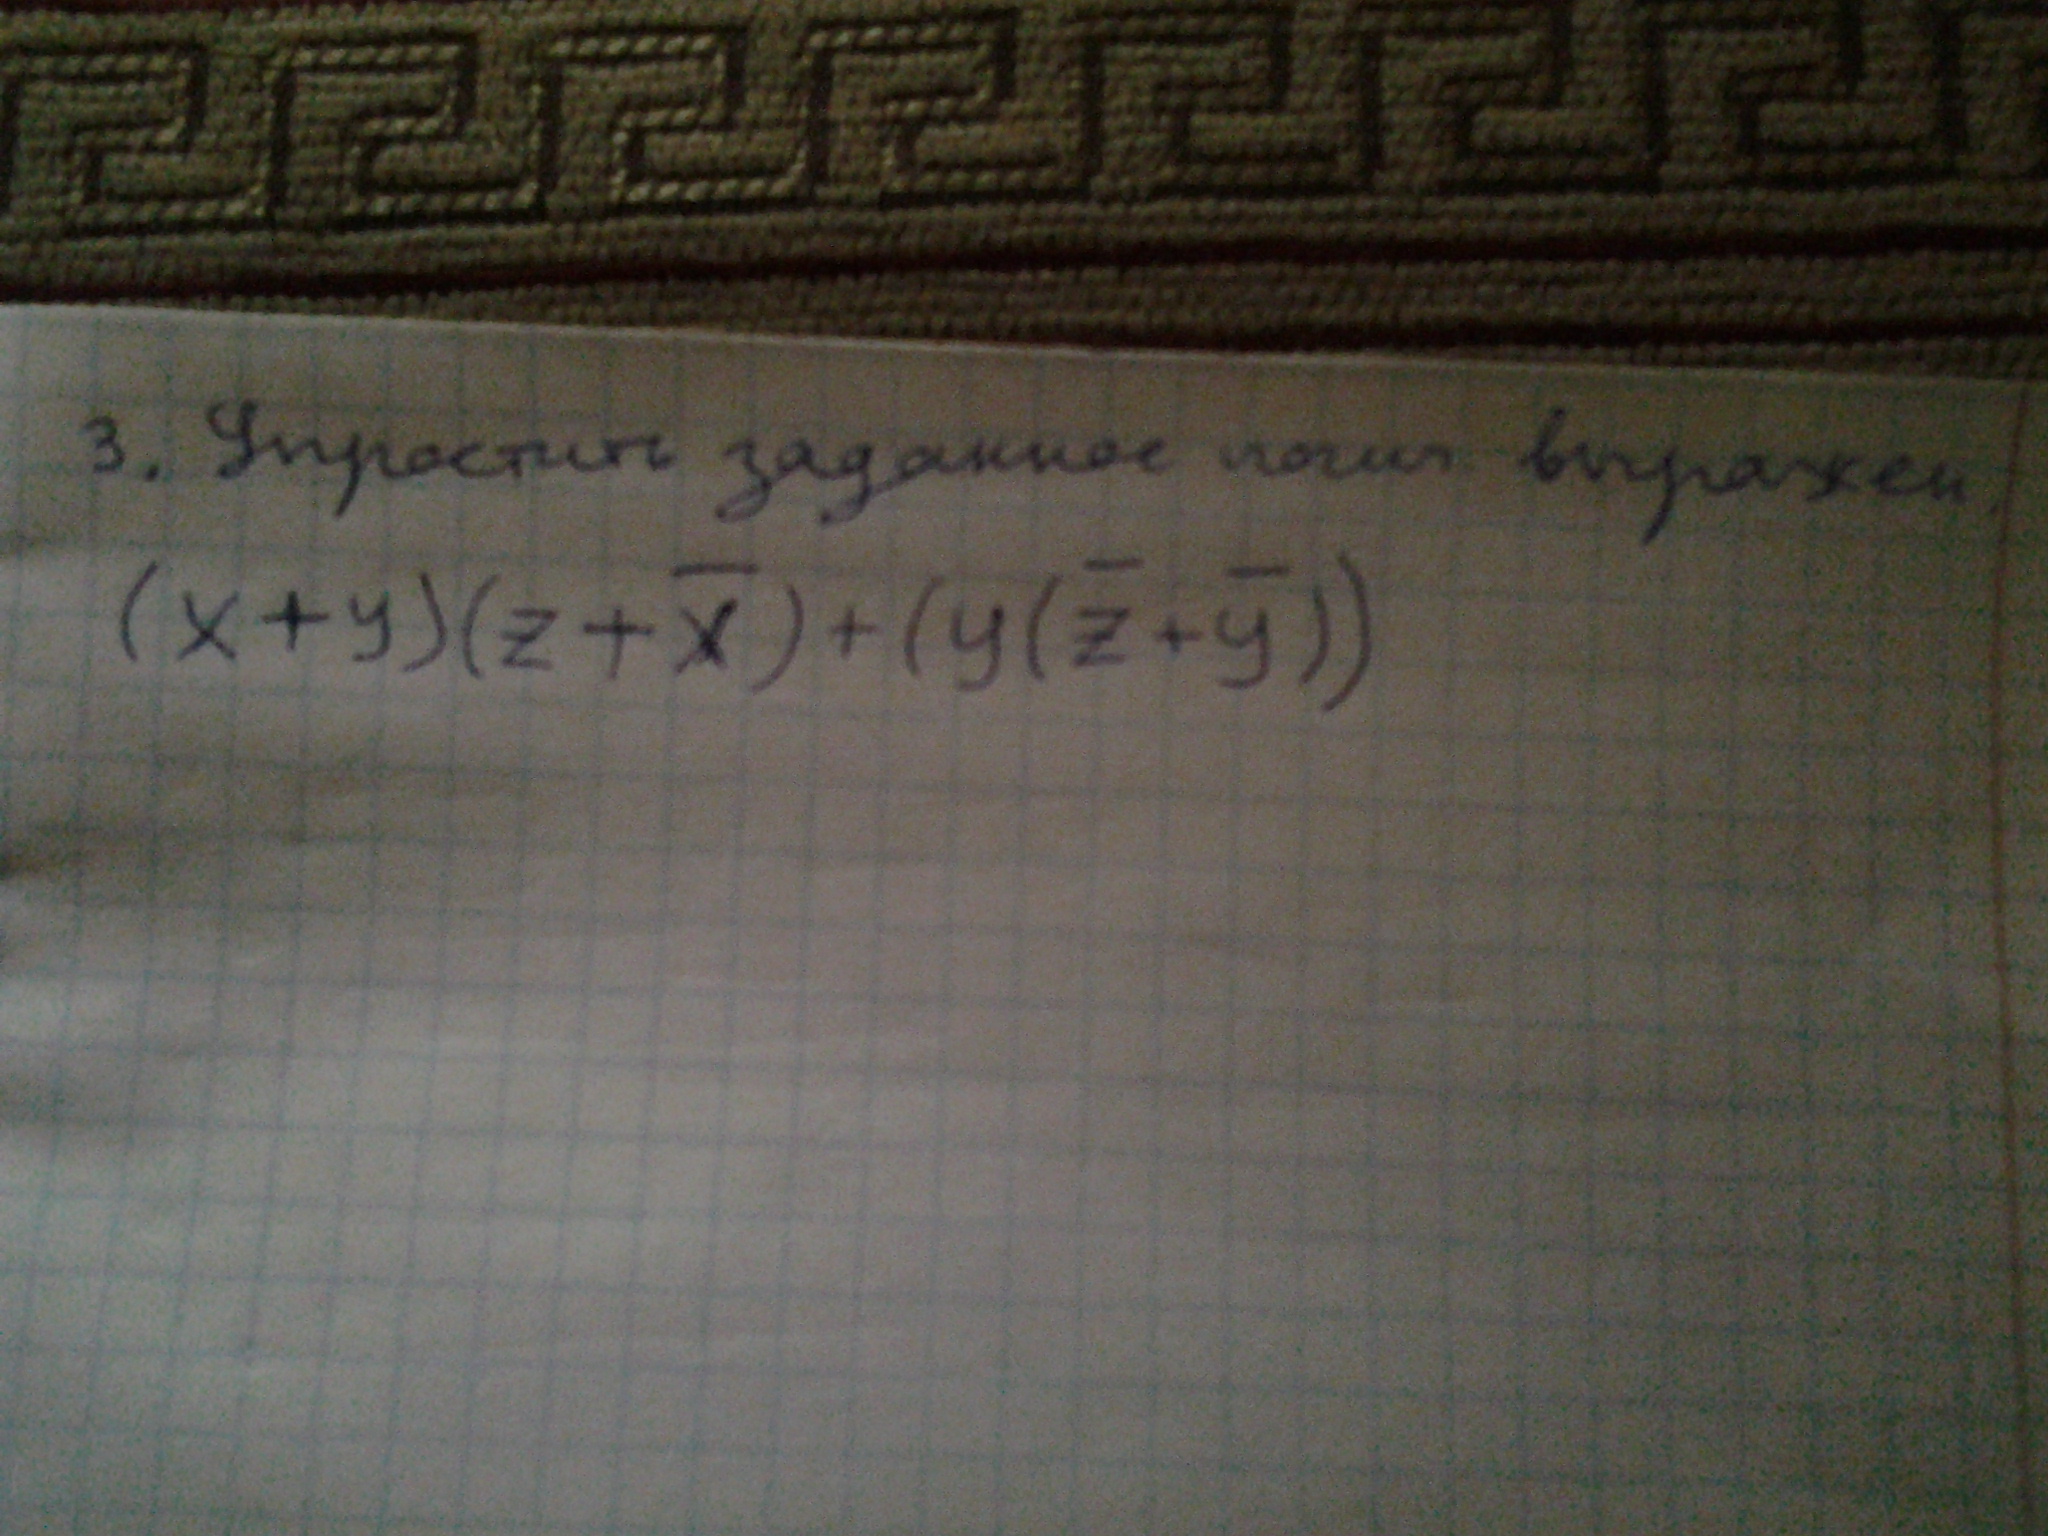 3. Упростить заданное логич выражен.
(x+y)(z+x̅)+(y(z̅+y̅))